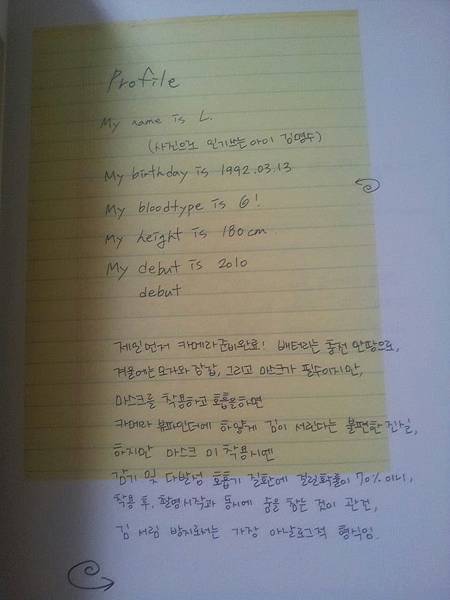 Profile
My name is L.
(사진으로 일기쓰는 아이 김명수)
My birthday is 1992.03.13
My bloodtype is O!
My height is 180cm.
My debut is 2010
debut
제일먼저 카메라준비완료! 배터리는 충전 만땅으로,
겨울에는 모자와 장갑, 그리고 마스크가 필수이지만,
마스크를 착용하고 호흡을하면
카메라 뷰파인더에 하얗게 김이 서린다는 불편한 진실,
하지만 마스크 미 착용시엔
감기 및 다발성 호흡기 질환에 걸릴확률이 70%이니,
착용 후, 촬영시작과 동시에 숨을 참는 것이 관건,
김 서림 방지로서는 가장 아날로그적 형식임.